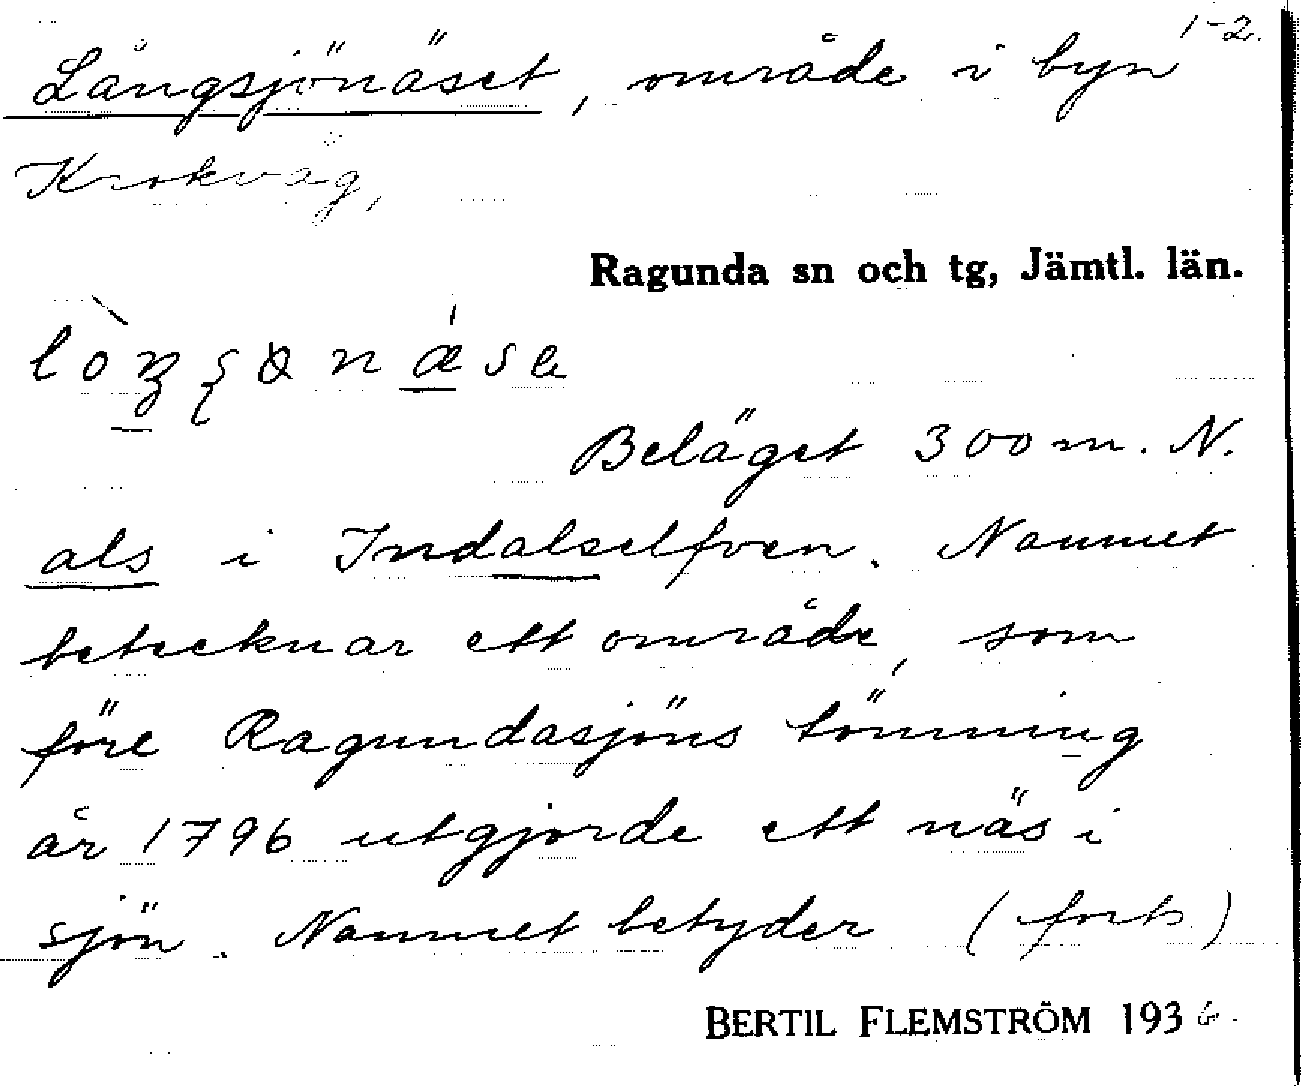 1-2.
Långsjönäset, område i byn
Krokvåg,
Ragunda sn och tg, Jämtl. län.
Beläget 300 m. N.
als i Indalselfven. Namnet
betecknar ett område, som
före Ragundasjöns tömning
år 1796 utgjorde ett näs i
sjön. Namnet betyder (forts.)
BERTIL FLEMSTRÖM 1936.